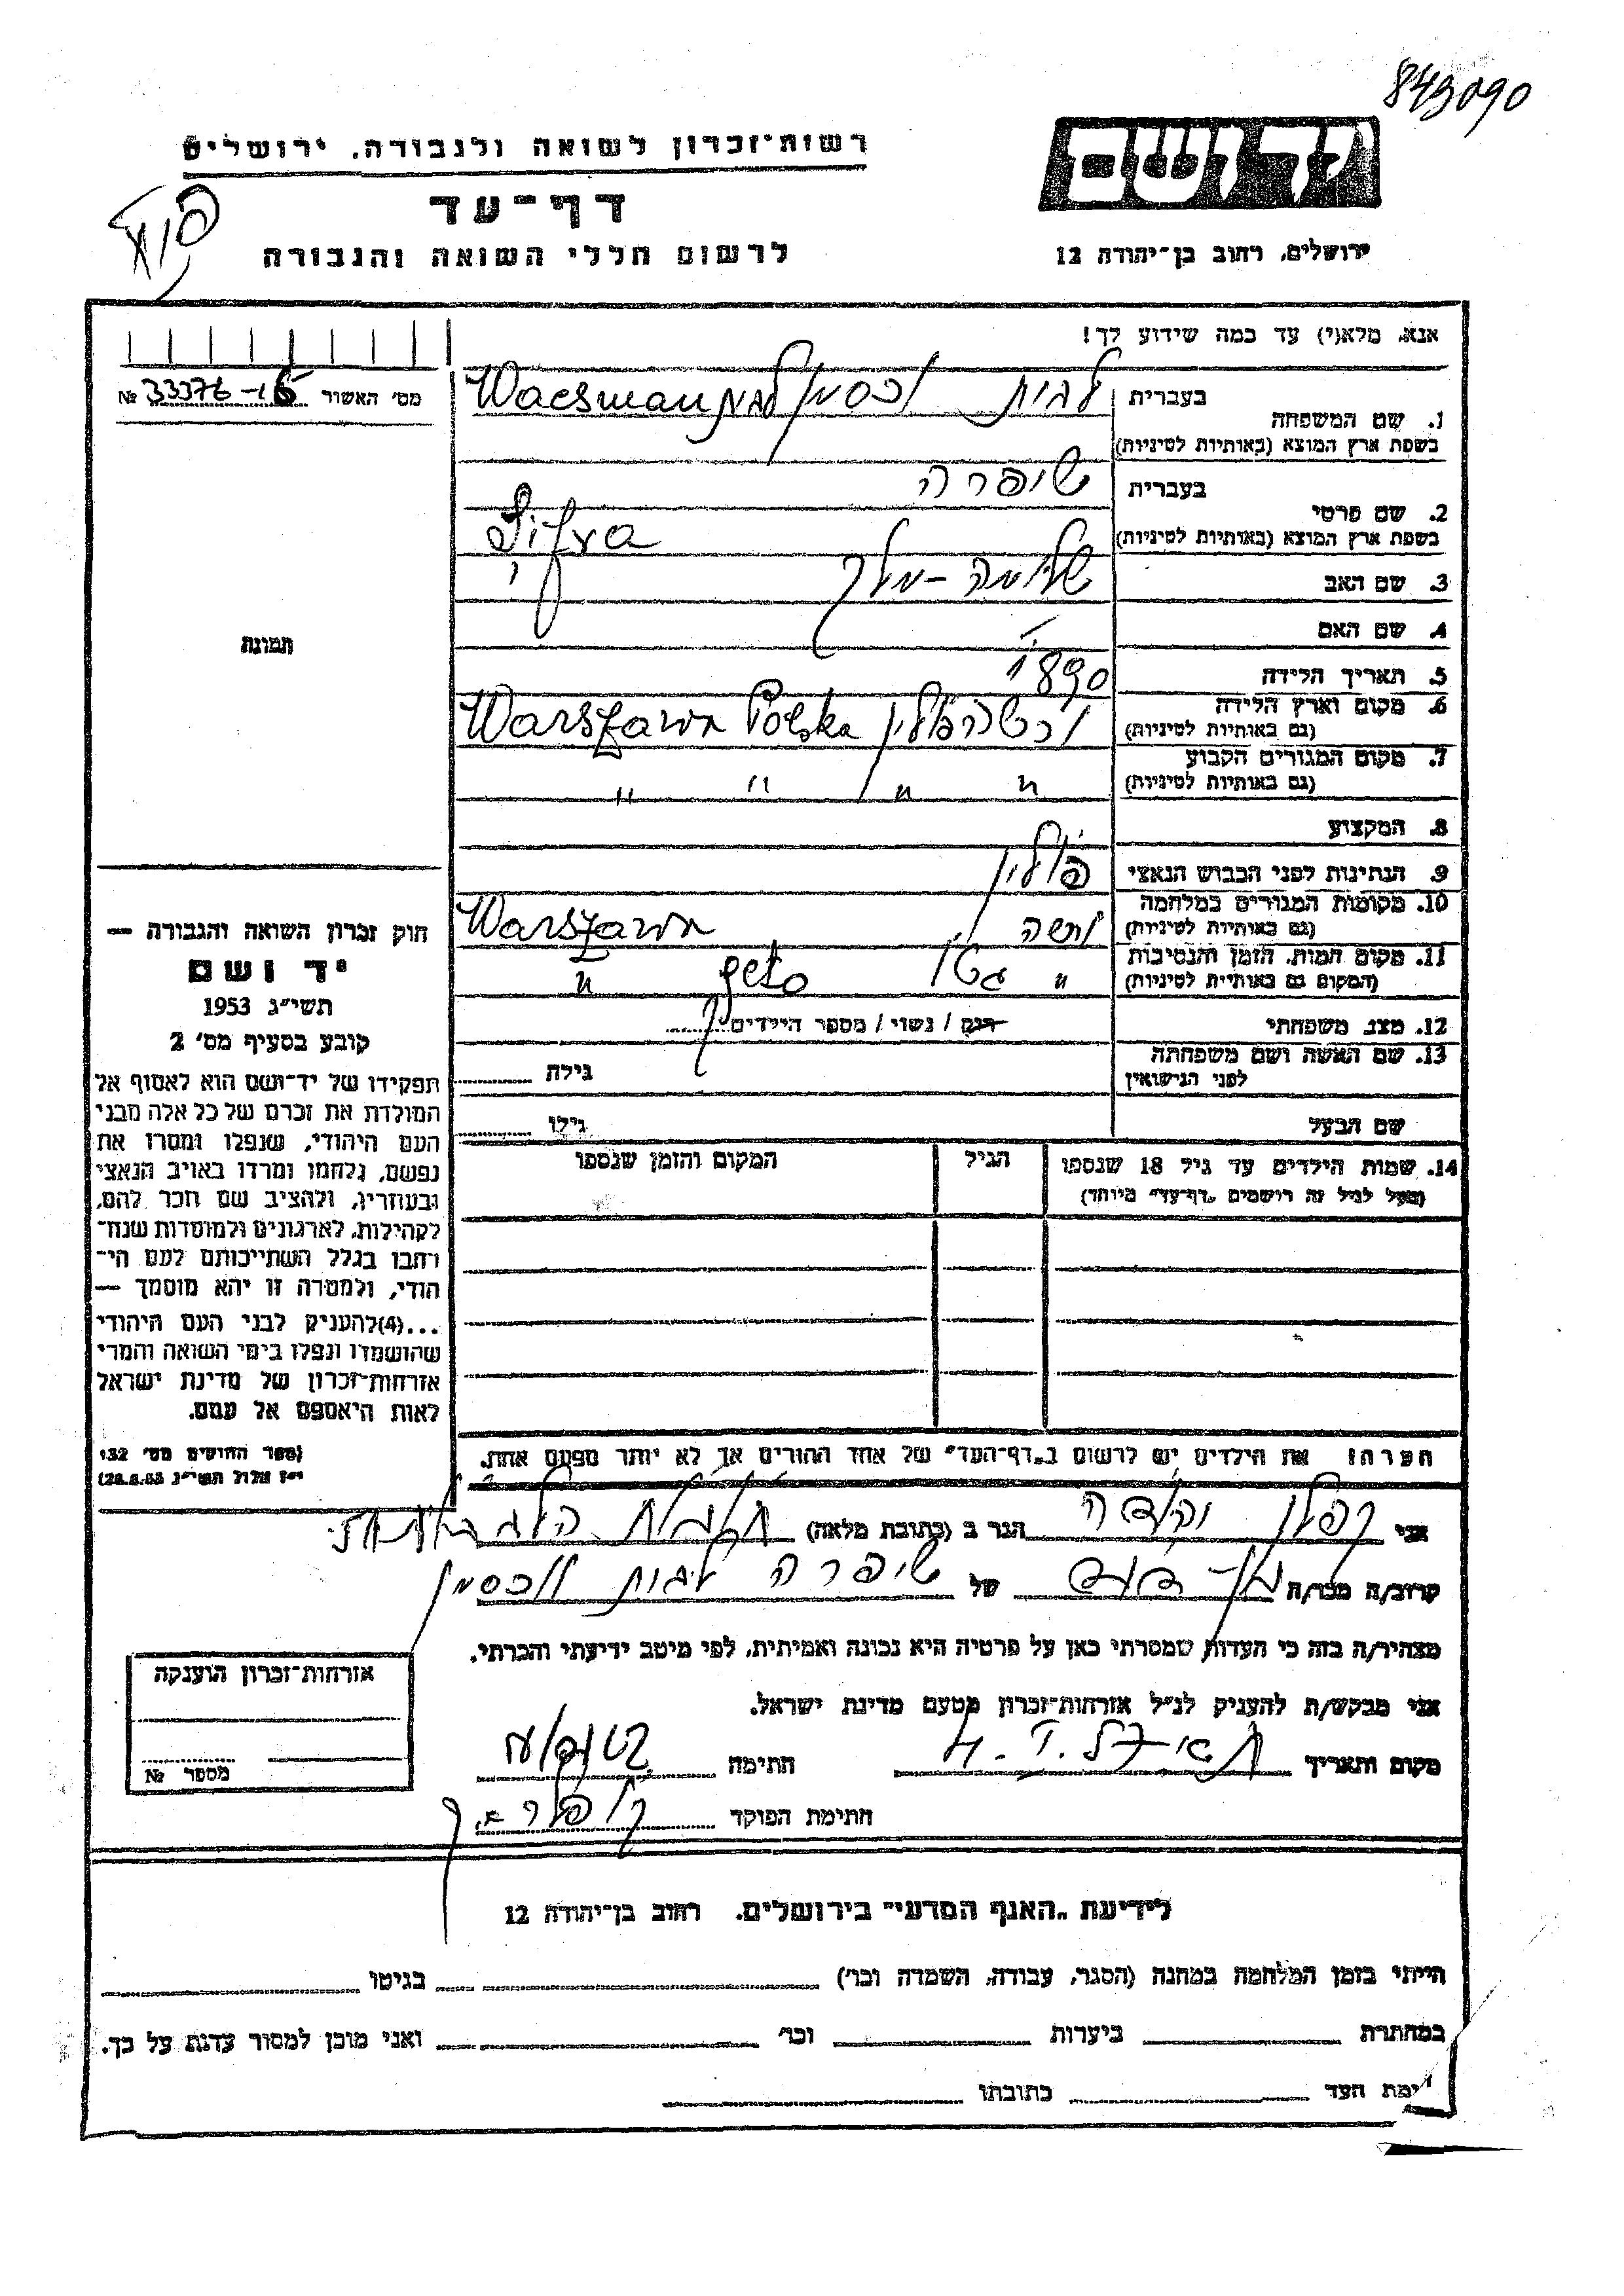 843090
רשות־זכרון לשואה ולגבורה, ירושלים
דף־עד
לרשום חללי השואה והגבורה
ירושלים, רחוב בן־יהודה 12
אנא, מלא(י) עד כמה שידוע לך!
מס' האשור № 33376-16
1. שם המשפחה בעברית וכסמן Wacsman
בשפת ארץ המוצא (באותיות לטיניות)
2. שם פרטי בעברית שיפרה
בשפת ארץ המוצא (באותיות לטיניות) Sifra
3. שם האב שלומה-מלך
4. שם האם
5. תאריך הלידה 1890
6. מקום וארץ הלידה (גם באותיות לטיניות) Warszawa Polska
7. מקום המגורים הקבוע (גם באותיות לטיניות) " " " "
8. המקצוע
9. הנתינות לפני הכבוש הנאצי פולין
10. מקומות המגורים במלחמה (גם באותיות לטיניות) ורשה Warszawa
11. מקום המות, הזמן והנסיבות (המקום גם באותיות לטיניות) " גטו geto "
12. מצב משפחתי רווק / נשוי / מספר הילדים
13. שם האשה ושם משפחתה לפני הנישואין גילה
שם הבעל גילו
14. שמות הילדים עד גיל 18 שנספו הגיל המקום והזמן שנספו
(מעל לגיל זה רושמים „דף־עד" מיוחד)
הערה: את הילדים יש לרשום ב„דף־העד" של אחד ההורים אך לא יותר מפעם אחת.
תמונה
חוק זכרון השואה והגבורה —
יד ושם
תשי"ג 1953
קובע בסעיף מס' 2
תפקידו של יד־ושם הוא לאסוף אל
המולדת את זכרם של כל אלה מבני
העם היהודי, שנפלו ומסרו את
נפשם, נלחמו ומרדו באויב הנאצי
ובעוזריו, ולהציב שם וזכר להם,
לקהילות, לארגונים ולמוסדות שנח־
רבו בגלל השתייכותם לעם הי־
הודי, ולמטרה זו יהא מוסמך —
...(4) להעניק לבני העם היהודי
שהושמדו ונפלו בימי השואה והמרי
אזרחות־זכרון של מדינת ישראל
לאות היאספם אל עמם.
(ספר החוקים מס' 132,
י"ז אלול תשי"ג 28.8.53)
אני הגר ב (כתובת מלאה)
קרוב/ה מכר/ה של שיפרה וכסמן
מצהיר/ה בזה כי העדות שמסרתי כאן על פרטיה היא נכונה ואמיתית, לפי מיטב ידיעתי והכרתי.
אני מבקש/ת להעניק לנ"ל אזרחות־זכרון מטעם מדינת ישראל.
מקום ותאריך חתימה
חתימת הפוקד
אזרחות־זכרון הוענקה
מספר №
לידיעת „האגף המדעי" בירושלים, רחוב בן־יהודה 12
הייתי בזמן המלחמה במחנה (הסגר, עבודה, השמדה וכו') בגיטו
במחתרת ביערות וכו' ואני מוכן למסור עדות על כך.
ימת העד כתובתו